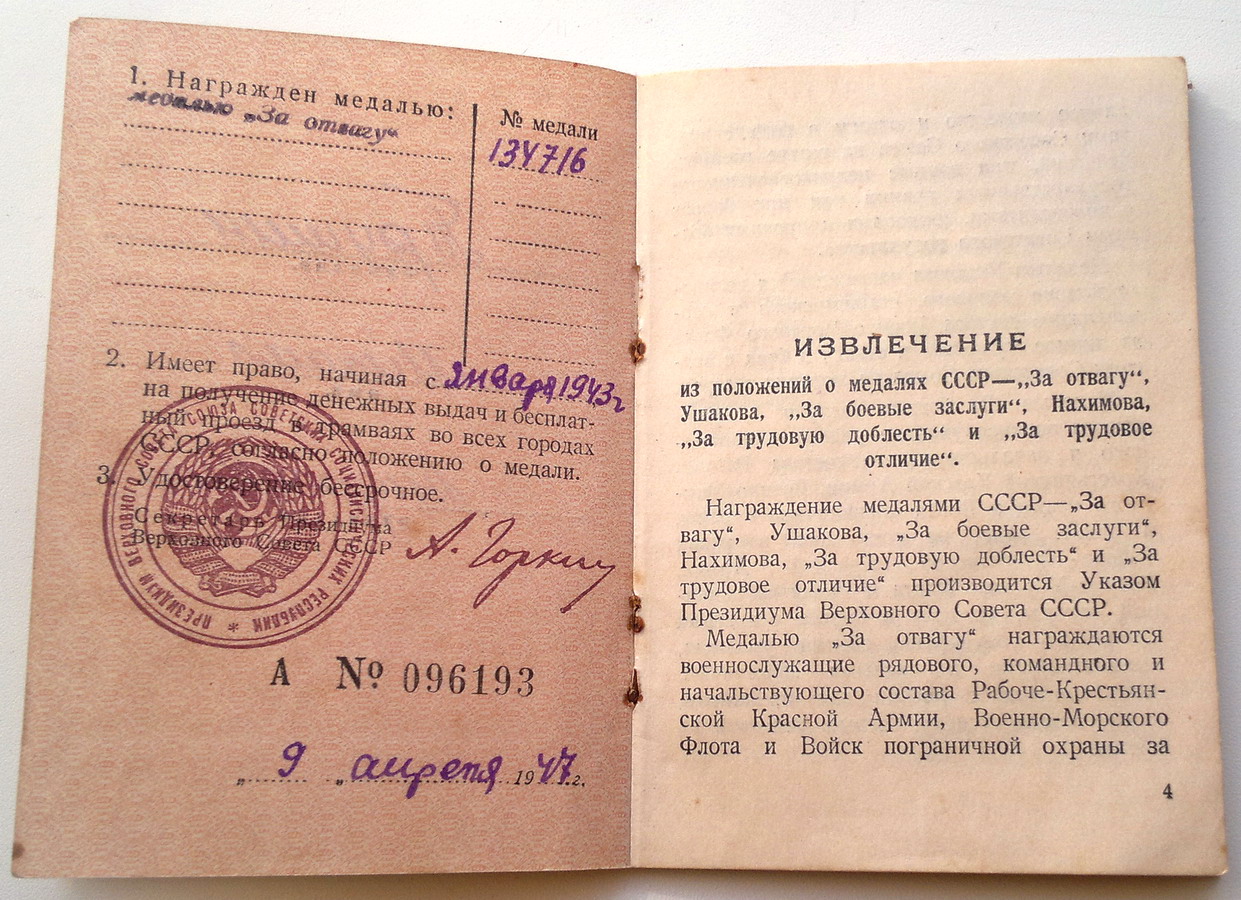 1. Награжден медалью:
медалью „За отвагу“
№ медали
134716
2. Имеет право, начиная с января 1943 г
на получение денежных выдач и бесплат-
ный проезд в трамваях во всех городах
СССР, согласно положению о медали.
3. Удостоверение бессрочное.
Секретарь Президиума
Верховного Совета СССР
А. Горкин
ПРЕЗИДИУМ ВЕРХОВНОГО СОВЕТА СОЮЗА СОВЕТСКИХ СОЦИАЛИСТИЧЕСКИХ РЕСПУБЛИК *
А № 096193
„ 9 „ апреля 1947 г.
ИЗВЛЕЧЕНИЕ
из положений о медалях СССР—„За отвагу“,
Ушакова, „За боевые заслуги“, Нахимова,
„За трудовую доблесть“ и „За трудовое
отличие“.
Награждение медалями СССР—„За от-
вагу“, Ушакова, „За боевые заслуги“,
Нахимова, „За трудовую доблесть“ и „За
трудовое отличие“ производится Указом
Президиума Верховного Совета СССР.
Медалью „За отвагу“ награждаются
военнослужащие рядового, командного и
начальствующего состава Рабоче-Крестьян-
ской Красной Армии, Военно-Морского
Флота и Войск пограничной охраны за
4